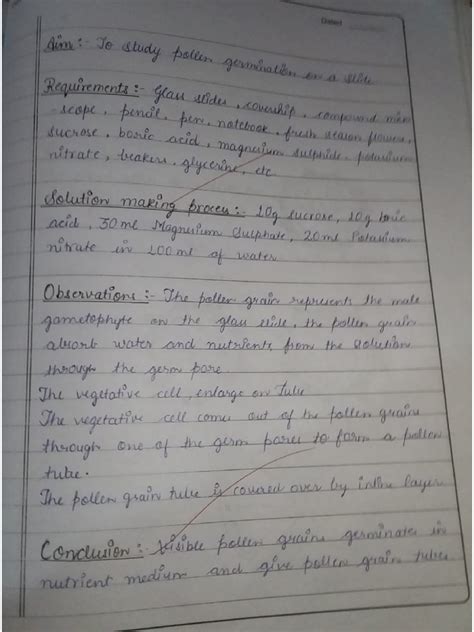 Aim :- To study pollen germination on a slide
Requirements :- Glass slides, coverslip, compound micro
-scope, pencil, pen, notebook, fresh season flowers,
sucrose, boric acid, magnesium sulphide, potassium
nitrate, beakers, glycerine, etc
Solution making process :- 10g sucrose, 10g boric
acid, 30ml Magnesium Sulphate, 20ml Potassium
nitrate in 100ml of water
Observations :- The pollen grain represents the male
gametophyte on the glass slide, the pollen grain
absorb water and nutrients from the solution
through the germ pore.
The vegetative cell, enlarge on tube
The vegetative cell comes out of the pollen grains
through one of the germ pores to form a pollen
tube.
The pollen grain tube is covered over by intine layer
Conclusion :- Visible pollen grains germinates in
nutrient medium and give pollen grain tubes